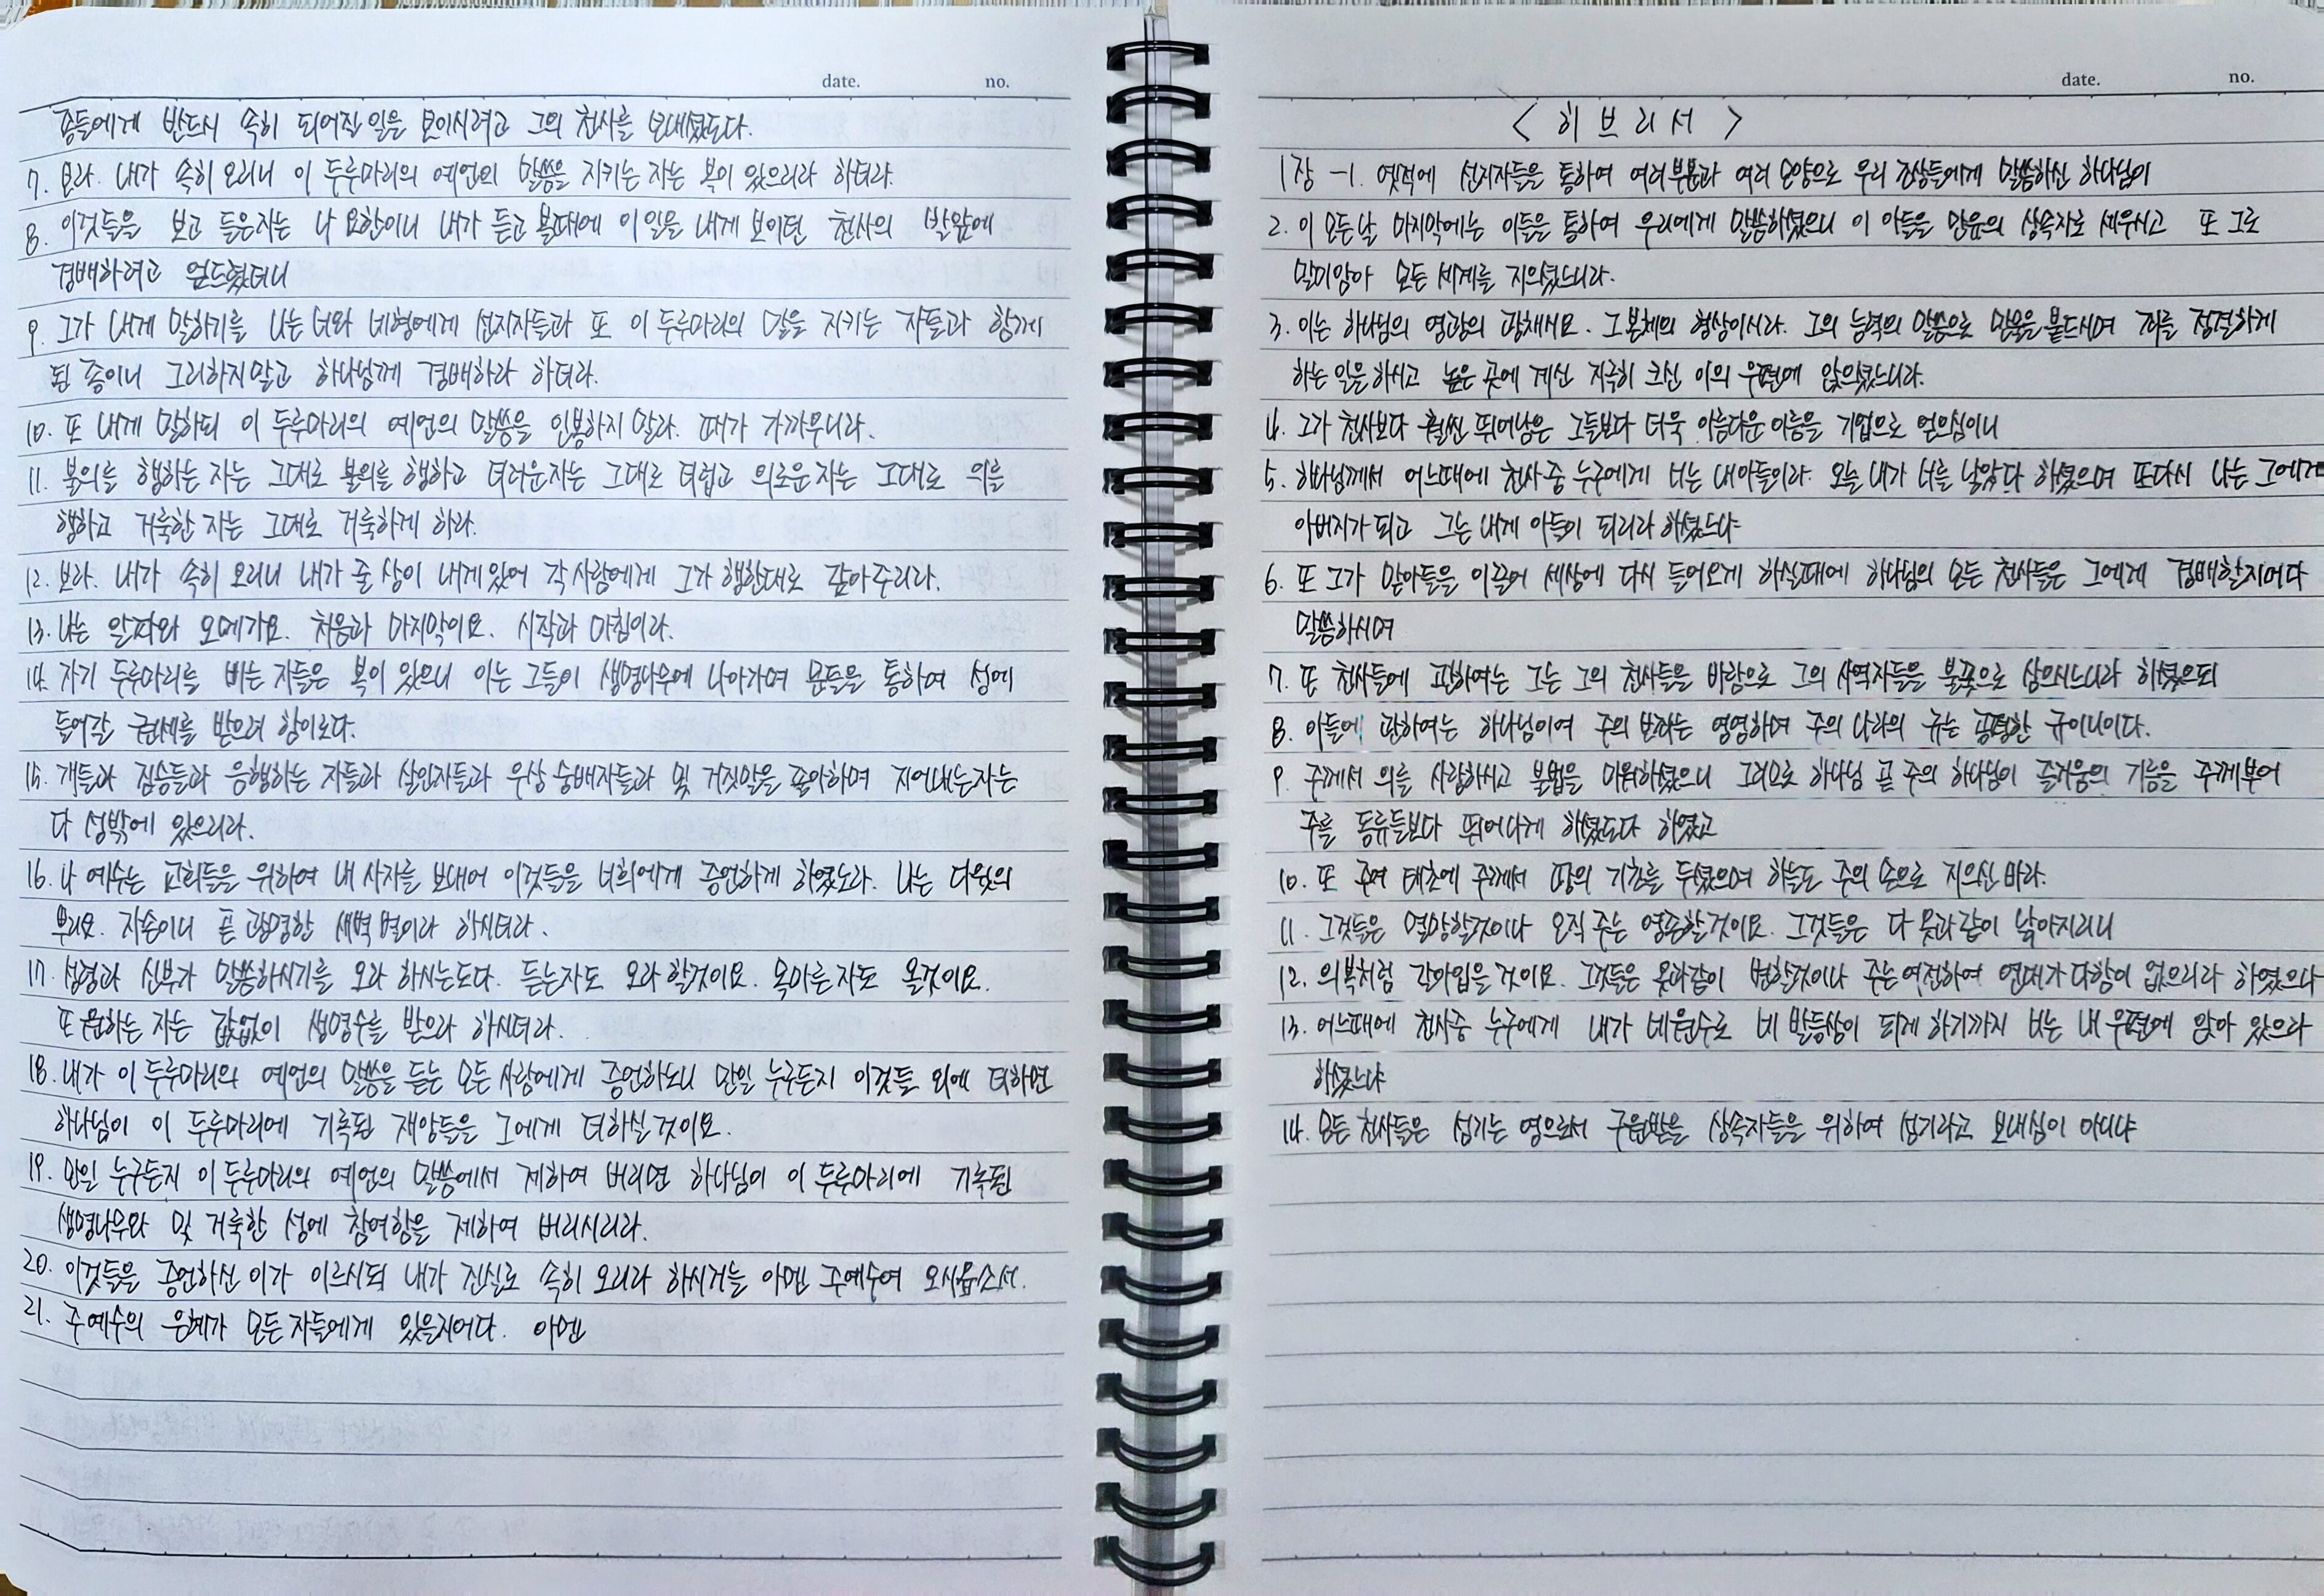 date. no.
종들에게 반드시 속히 되어질 일을 보이시려고 그의 천사를 보내셨도다.
7. 보라. 내가 속히 오리니 이 두루마리의 예언의 말씀을 지키는 자는 복이 있으리라 하더라.
8. 이것들을 보고 들은자는 나 요한이니 내가 듣고 볼때에 이 일을 내게 보이던 천사의 발앞에
경배하려고 엎드렸더니
9. 그가 내게 말하기를 나는 너와 네형에게 선지자들과 또 이 두루마리의 말을 지키는 자들과 함께
된 종이니 그리하지말고 하나님께 경배하라 하더라.
10. 또 내게 말하되 이 두루마리의 예언의 말씀을 인봉하지 말라. 때가 가까우니라.
11. 불의를 행하는 자는 그대로 불의를 행하고 더러운자는 그대로 더럽고 의로운 자는 그대로 의를
행하고 거룩한 자는 그대로 거룩하게 하라.
12. 보라. 내가 속히 오리니 내가 줄 상이 내게있어 각 사람에게 그가 행한대로 갚아주리라.
13. 나는 알파와 오메가요. 처음과 마지막이요. 시작과 마침이라.
14. 자기 두루마리를 빠는 자들은 복이 있으니 이는 그들이 생명나무에 나아가며 문들을 통하여 성에
들어갈 권세를 받으려 함이로다.
15. 개들과 점술들과 음행하는 자들과 살인자들과 우상 숭배자들과 및 거짓말을 좋아하며 지어내는자는
다 성밖에 있으리라.
16. 나 예수는 교회들을 위하여 내 사자를 보내어 이것들을 너희에게 증언하게 하였노라. 나는 다윗의
뿌리요. 자손이니 곧 광명한 새벽 별이라 하시더라.
17. 성령과 신부가 말씀하시기를 오라 하시는도다. 듣는자도 오라 할것이요. 목마른 자도 올것이요.
또 원하는 자는 값없이 생명수를 받으라 하시더라.
18. 내가 이 두루마리의 예언의 말씀을 듣는 모든 사람에게 증언하노니 만일 누구든지 이것들 외에 더하면
하나님이 이 두루마리에 기록된 재앙들을 그에게 더하실 것이요.
19. 만일 누구든지 이 두루마리의 예언의 말씀에서 제하여 버리면 하나님이 이 두루마리에 기록된
생명나무와 및 거룩한 성에 참여함을 제하여 버리시리라.
20. 이것들을 증언하신 이가 이르시되 내가 진실로 속히 오리라 하시거늘 아멘 주예수여 오시옵소서.
21. 주 예수의 은혜가 모든 자들에게 있을지어다. 아멘
date. no.
< 히 브 리 서 >
1장 -1. 옛적에 선지자들을 통하여 여러부분과 여러 모양으로 우리 조상들에게 말씀하신 하나님이
2. 이 모든날 마지막에는 아들을 통하여 우리에게 말씀하셨으니 이 아들을 만유의 상속자로 세우시고 또 그로
말미암아 모든 세계를 지으셨느니라.
3. 이는 하나님의 영광의 광채시요. 그 본체의 형상이시라. 그의 능력의 말씀으로 만물을 붙드시며 죄를 정결하게
하는 일을 하시고 높은 곳에 계신 지극히 크신 이의 우편에 앉으셨느니라.
4. 그가 천사보다 훨씬 뛰어남은 그들보다 더욱 아름다운 이름을 기업으로 얻으심이니
5. 하나님께서 어느때에 천사중 누구에게 너는 내아들이라. 오늘 내가 너를 낳았다 하셨으며 또다시 나는 그에게
아버지가 되고 그는 내게 아들이 되리라 하셨느냐
6. 또 그가 맏아들을 이끌어 세상에 다시 들어오게 하실때에 하나님의 모든 천사들은 그에게 경배할지어다
말씀하시며
7. 또 천사들에 관하여는 그는 그의 천사들을 바람으로 그의 사역자들을 불꽃으로 삼으시느니라 하셨으되
8. 아들에 관하여는 하나님이여 주의 보좌는 영영하며 주의 나라의 규는 공평한 규이니이다.
9. 주께서 의를 사랑하시고 불법을 미워하셨으니 그러므로 하나님 곧 주의 하나님이 즐거움의 기름을 주께부어
주를 동류들보다 뛰어나게 하셨도다 하였고
10. 또 주여 태초에 주께서 땅의 기초를 두셨으며 하늘도 주의 손으로 지으신 바라.
11. 그것들은 멸망할것이나 오직 주는 영존할것이요. 그것들은 다 옷과같이 낡아지리니
12. 의복처럼 갈아입을 것이요. 그것들은 옷과같이 변할것이나 주는여전하여 연대가다함이 없으리라 하였으나
13. 어느때에 천사중 누구에게 내가 네원수로 네 발등상이 되게 하기까지 너는 내 우편에 앉아 있으라
하셨느냐
14. 모든 천사들은 섬기는 영으로서 구원받을 상속자들을 위하여 섬기라고 보내심이 아니냐